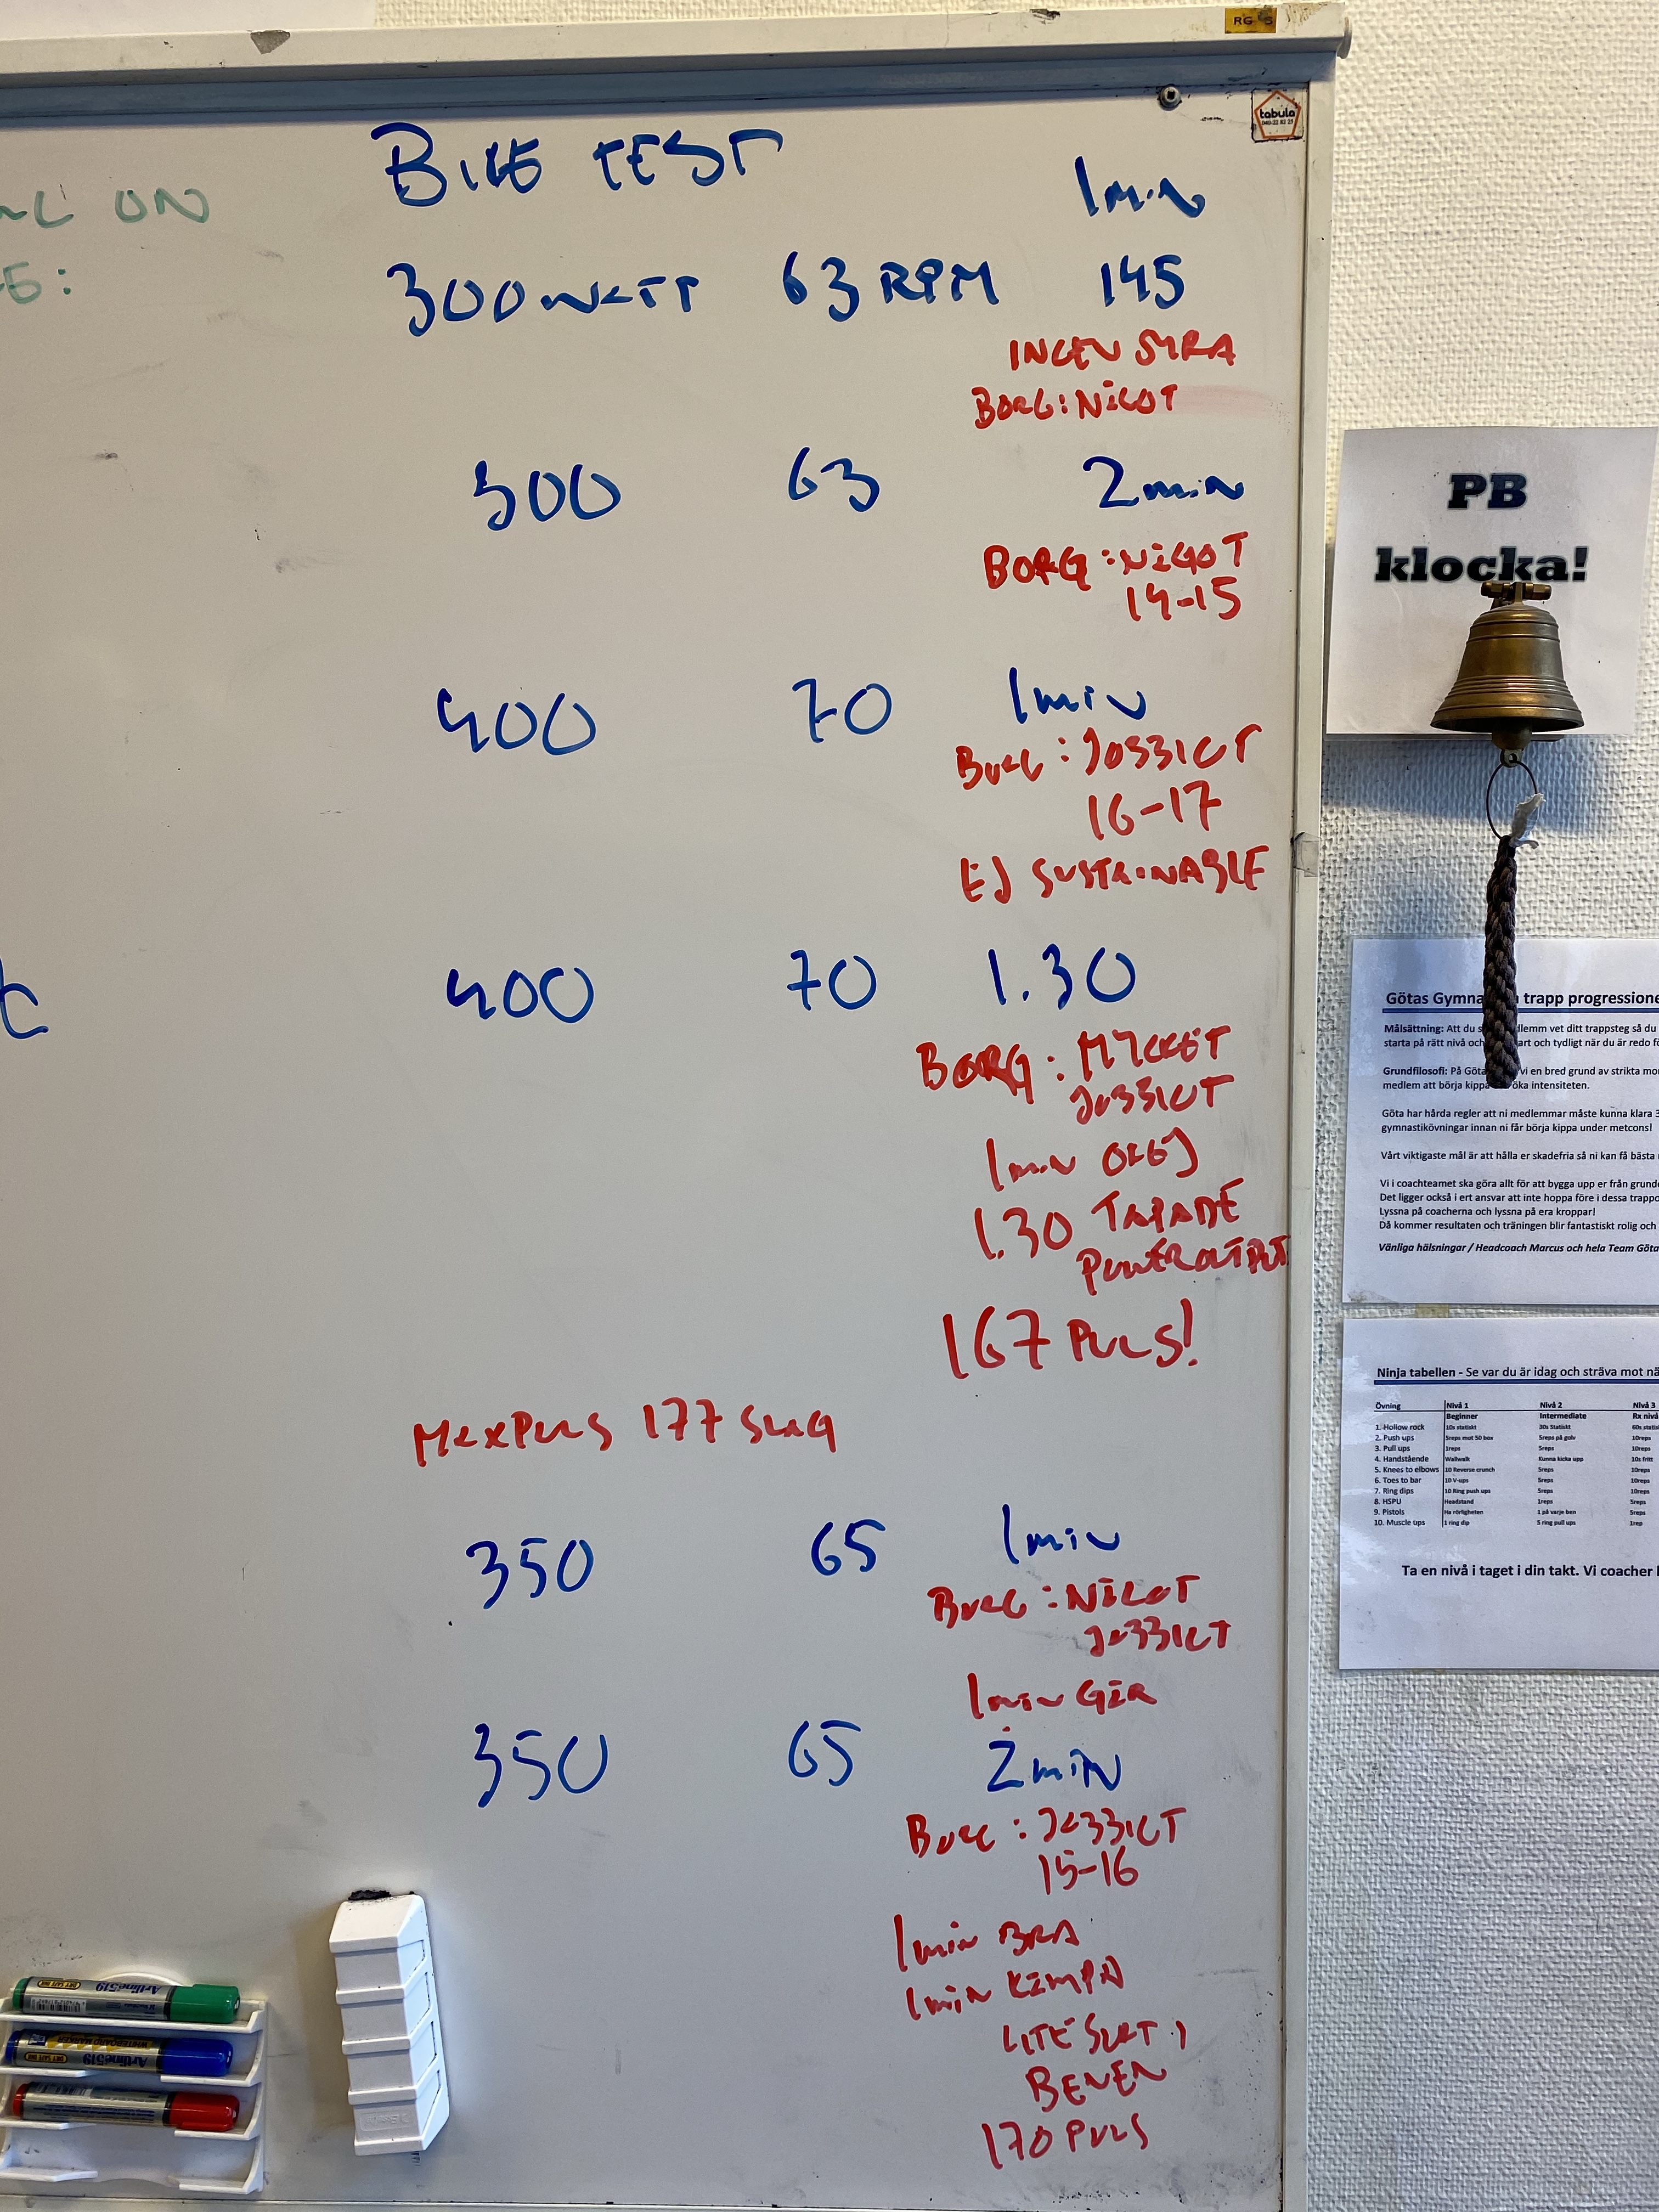 RG 5
tabula
040-22 82 25
ON
BIKE TEST
1min
300 WATT 63 RPM 145
INGEN SYRA
BORG: NÅGOT
300 63 2min
BORG: NÅGOT
14-15
400 70 1min
BORG: JOBBIGT
16-17
EJ SUSTAINABLE
400 70 1.30
BORG: MYCKET
JOBBIGT
1min OKEJ
1.30 TAPADE
POWEROUTPUT
167 PULS!
MAXPULS 177 SLAG
350 65 1min
BORG: NÅGOT
JOBBIGT
1min GER
350 65 2min
BORG: JOBBIGT
15-16
1min BRA
1min KÄMPA
LITE SURT I
BENEN
170 PULS
Artline 519
Artline 519
WHITEBOARD MARKER
PB
klocka!
Götas Gymna trapp progressione
Målsättning: Att du s dlemm vet ditt trappsteg så du
starta på rätt nivå och art och tydligt när du är redo fö
Grundfilosofi: På Göta vi en bred grund av strikta mo
medlem att börja kippa öka intensiteten.
Göta har hårda regler att ni medlemmar måste kunna klara 3
gymnastikövningar innan ni får börja kippa under metcons!
Vårt viktigaste mål är att hålla er skadefria så ni kan få bästa
Vi i coachteamet ska göra allt för att bygga upp er från grunde
Det ligger också i ert ansvar att inte hoppa före i dessa trappo
Lyssna på coacherna och lyssna på era kroppar!
Då kommer resultaten och träningen blir fantastiskt rolig och
Vänliga hälsningar / Headcoach Marcus och hela Team Göta
Ninja tabellen - Se var du är idag och sträva mot nä
Övning Nivå 1 Nivå 2 Nivå 3
Beginner Intermediate Rx nivå
1. Hollow rock 10s statiskt 30s Statiskt 60s statis
2. Push ups 5reps mot 50 box 5reps på golv 10reps
3. Pull ups 1reps 5reps 10reps
4. Handstående Wallwalk Kunna kicka upp 10s fritt
5. Knees to elbows 10 Reverse crunch 5reps 10reps
6. Toes to bar 10 V-ups 5reps 10reps
7. Ring dips 10 Ring push ups 5reps 10reps
8. HSPU Headstand 1reps 5reps
9. Pistols Ha rörligheten 1 på varje ben 5reps
10. Muscle ups 1 ring dip 5 ring pull ups 1rep
Ta en nivå i taget i din takt. Vi coacher